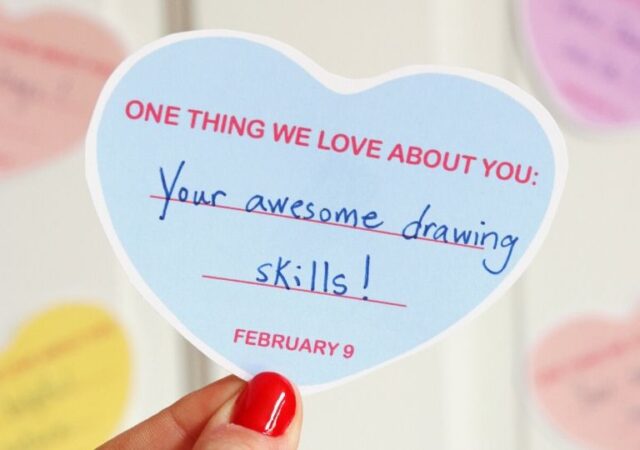 ONE THING WE LOVE ABOUT YOU:
Your awesome drawing
skills!
FEBRUARY 9